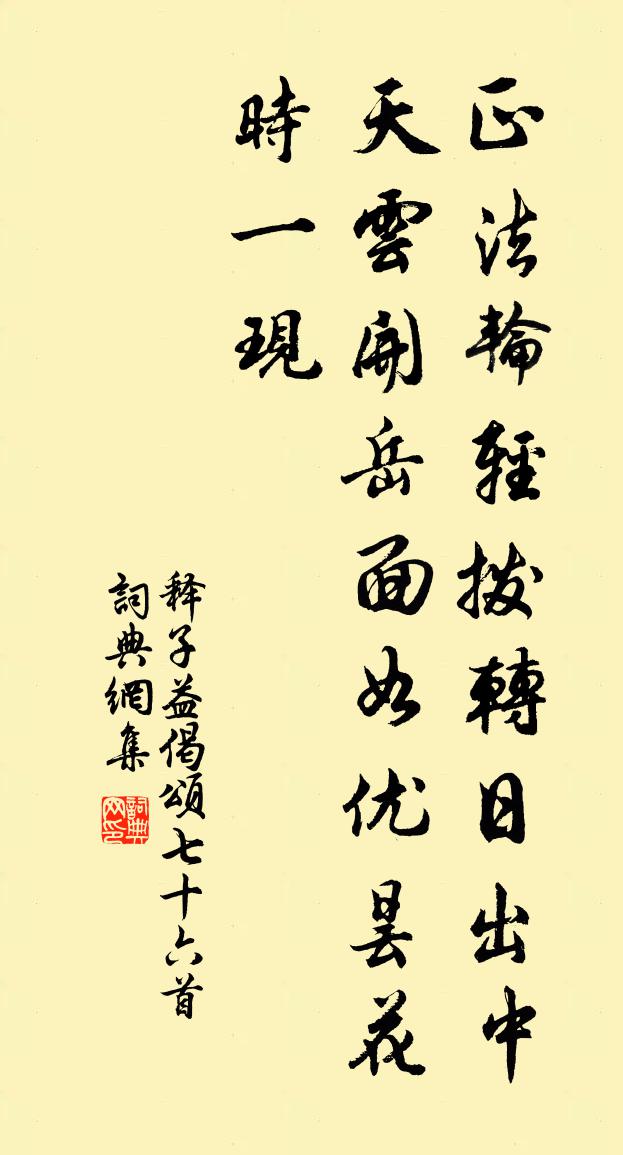 正法輪輕拨轉日出中
天雲開岳面如优昙花
時一現
释子益偈頌七十六首
詞典網集
詞典
网印